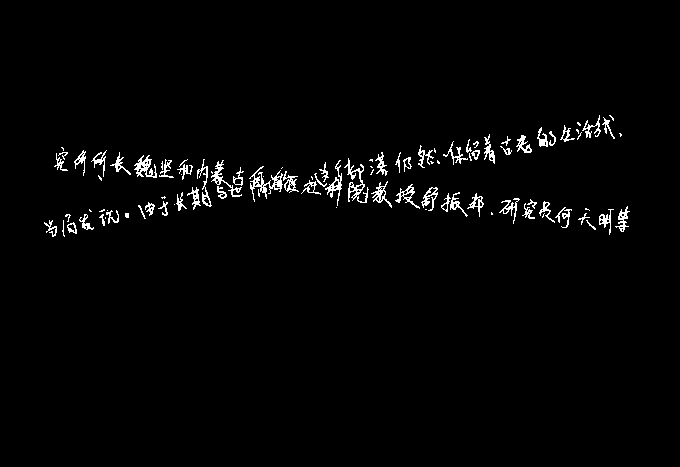 究所所长魏坚和内蒙古自治区社科院教授舒振邦、研究员何天明等
当局发现。由于长期与世隔绝,这个部落仍然保留着古老的生活